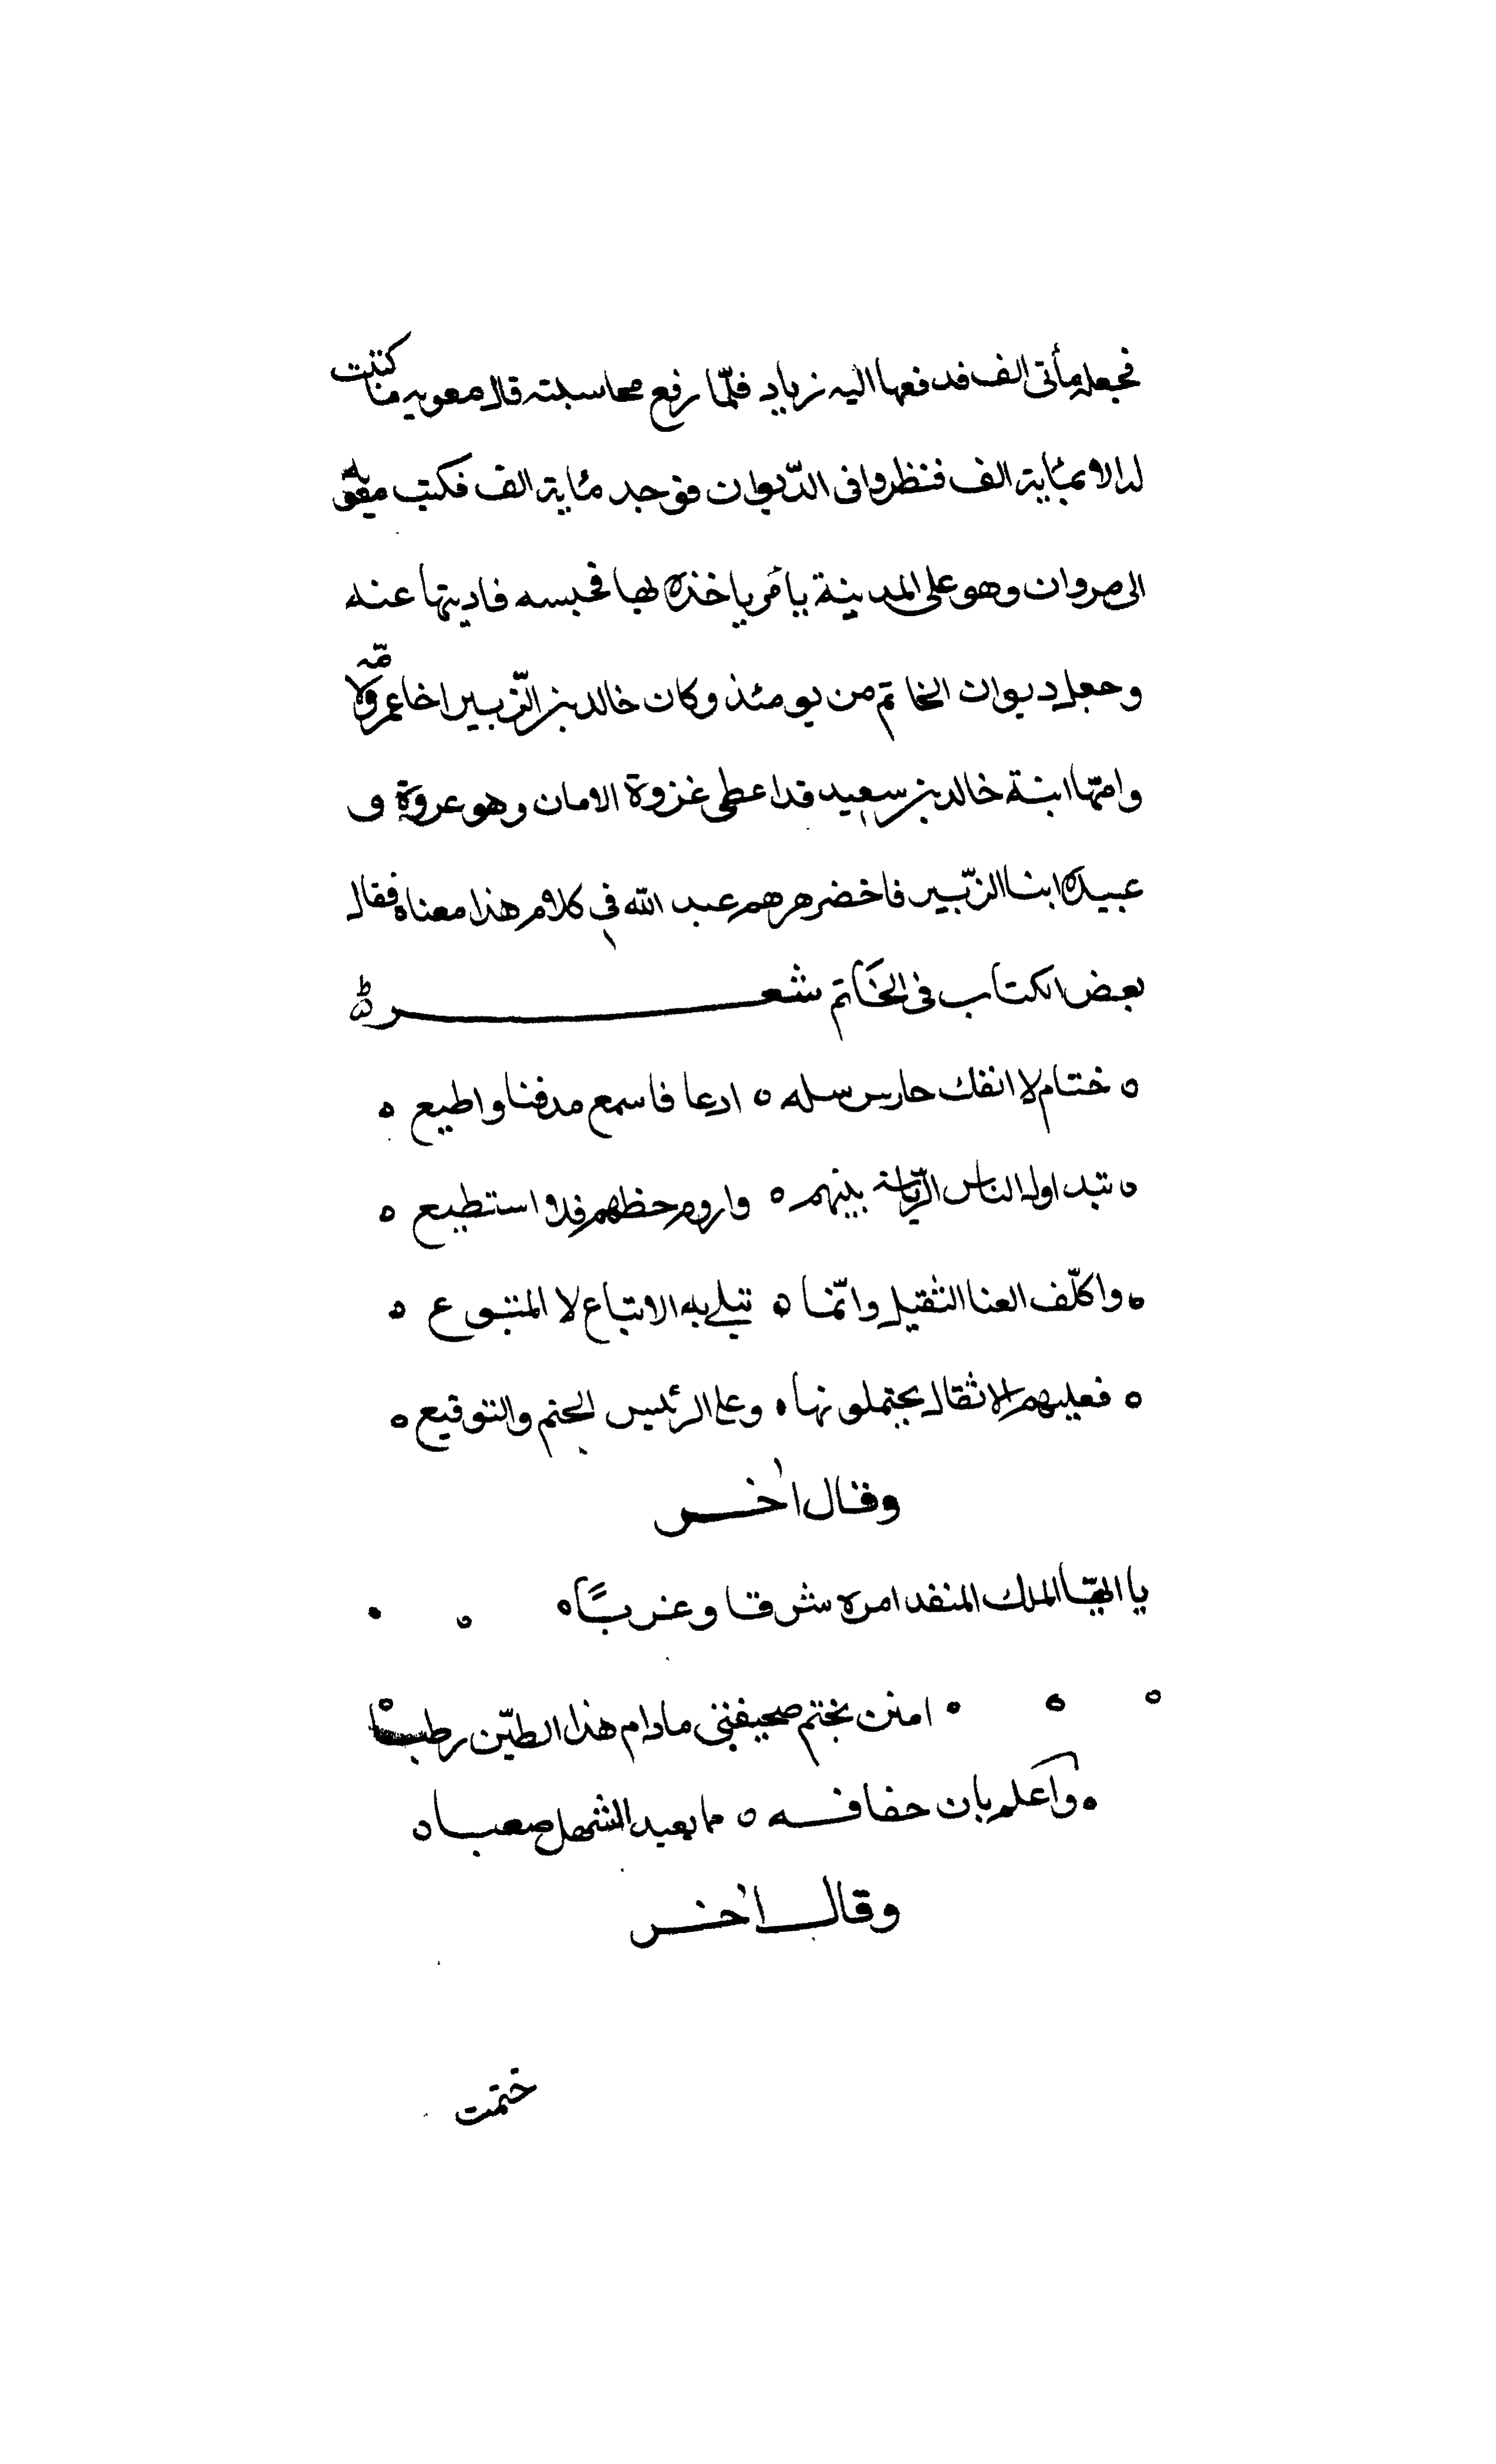 فجعله مأتى الف فدفعها اليه زياد فلمّا رفع محاسبته قال معويه ما كتبت
له الا بمئاية الف فنظروا فى الدّيوان فوجد مئاية الف فكتب معوية
الى مروان وهو على المدينة يأمر ياخذه بها فحبسه فاديتها عنه
وجعل ديوان الخاتم من يومئذ وكان خالد بن الزّبير اخا عمرو لامّه
وامّها ابنة خالد بن سعيد قد اعطى غزوة الامان وهو عروة و
عبيده ابنا الزّبير فاخضرهرهم عبد الله فى كلام هذا معناه فقال
بعض الكتاب فى الخَاتم شعر
ختام لا انفك حارس سله ٥ ادعا فاسمع مدفنا واطيع ٥
تتداوله الناس الرّياسة بينهم ٥ واروم حظهم فلا استطيع ٥
واكلّف العنا الثقيل وانّما ٥ تبلى به الاتباع لا المتبوع ٥
فعليهم الاثقال يحتملونها ٥ وعلى الرئيس الختم والتوقيع ٥
وقال اخر
يا ايّها الملك المنفد امره شرقا وغربًا ٥
امنن بختم صحيفتى مادام هذا الطيّن رطبا
واعلم بان حفافه ٥ مما يعيد السّهل صعبا ٥
وقال اخر
ختمت